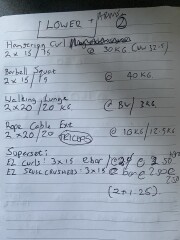 LOWER + ARMS 2
Hamstring Curl
2 x 15 / 15 @ 30KG
Barbell Squat
2 x 15 / 15 @ 40KG
Walking Lunge
2 x 20 / 20 @ BW /
Rope Cable Ext
2 x 20 / 20 TRICEPS @ 10KG / 12.5KG
Superset:
EZ Curls: 3x15 @ bar
EZ SKULLCRUSHERS: 3x15 @ bar